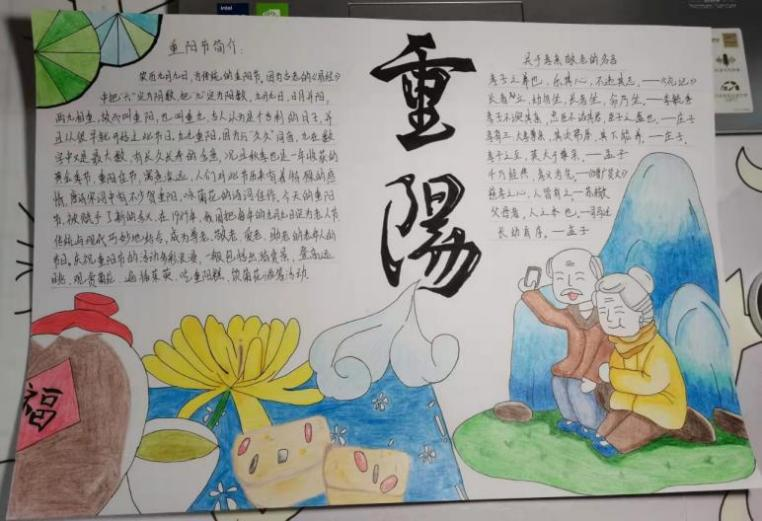 重阳节简介:
农历九月九日,为传统的重阳节。因为古老的《易经》
中把“六”定为阴数,把“九”定为阳数,九月九日,日月并阳,
两九相重,故而叫重阳,也叫重九,古人认为是个吉利的日子,并
且从很早就开始过此节日。九九重阳,因为与“久久”同音,九在数
字中又是最大数,有长久长寿的含意,况且秋季也是一年收获的
黄金季节,重阳佳节,寓意深远,人们对此节历来有着特殊的感
情,唐诗宋词中有不少贺重阳,咏菊花的诗词佳作。今天的重阳
节,被赋予了新的含义,在1989年,我国把每年的九月九日定为老人节
传统与现代巧妙地结合,成为尊老、敬老、爱老、助老的老年人的
节日。庆祝重阳节的活动多彩浪漫,一般包括出游赏景、登高远
眺、观赏菊花、遍插茱萸、吃重阳糕、饮菊花酒等活动。
重
陽
关于孝亲敬老的名言
孝子之养也,乐其心,不违其志。——《礼记》
孝子之至,莫大乎尊亲。——孟子
父母者,人之本也。——司马迁
长幼有序。——孟子
福
intel